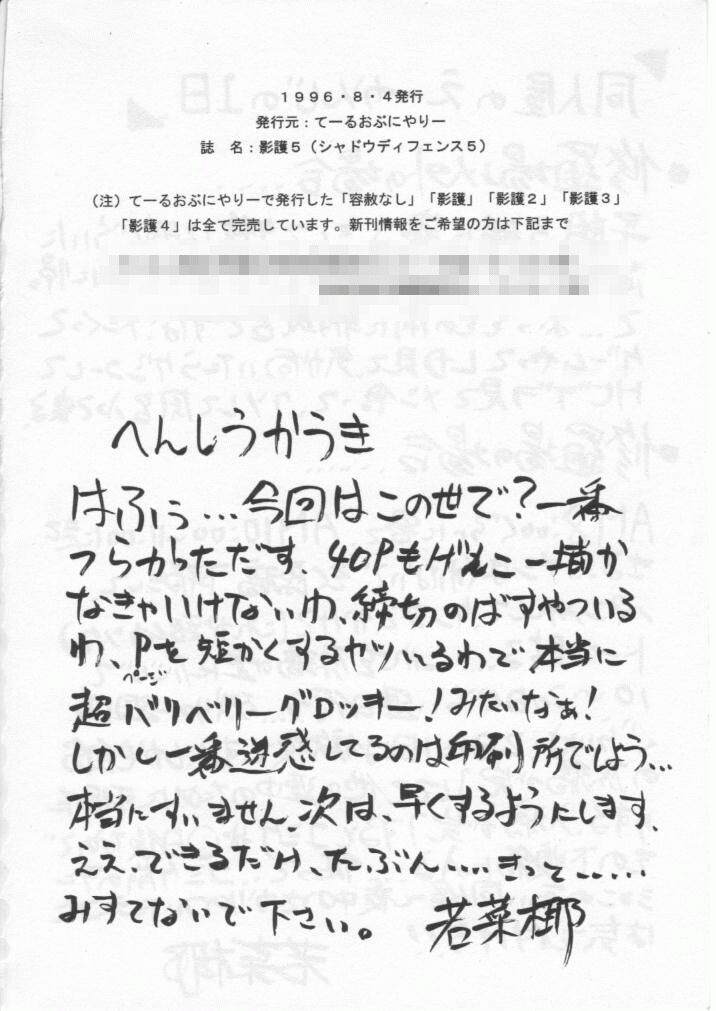 1996・8・4発行
発行元：てーるおぶにやりー
誌　名：影護5（シャドウディフェンス5）
（注）てーるおぶにやりーで発行した「容赦なし」「影護」「影護2」「影護3」
「影護4」は全て完売しています。新刊情報をご希望の方は下記まで
へんしうかうき
はふぅ…今回はこの世で？一番
つらかっただす、40Pもゲもこー描か
なきゃいけないわ、締切のばすやついる
わ、Pを短かくするヤツいるわで本当に
ページ
超バリベリーグロッキー！みたいなぁ！
しかし一番迷惑してるのは印刷所でしよう…
本当にすいません。次は、早くするようにします、
ええ、できるだけ、たぶん‥‥きって‥‥‥
みすてないで下さい。 若菜椰